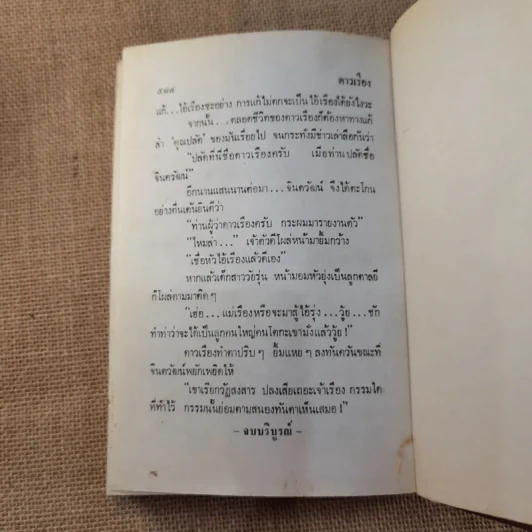 ๕๘๙ ดาวเรือง
แก้...ไอ้เรืองซะอย่าง การแก้ไม่ตกจะเป็นไอ้เรืองได้ยังไงวะ
จากนั้น...ตลอดชีวิตของดาวเรืองก็ต้องหาทางแก้
ลำ 'คุณปลัด' ของมันเรื่อยไป จนกระทั่งมีข่าวเล่าลือกันว่า
"ปลัดที่นี่ชื่อดาวเรืองครับ เมื่อท่านปลัดชื่อ
จินตวัฒน์"
อีกนานแสนนานต่อมา...จินตวัฒน์ จึงได้ตะโกน
อย่างตื่นเต้นยินดีว่า
"ท่านผู้ว่าดาวเรืองครับ กระผมมารายงานตัว"
"ไหมล่า..." เจ้าตัวดีโผล่หน้ามายิ้มกว้าง
"เชื่อหัวไอ้เรืองแล้วดีเอง"
หากแล้วเด็กสาววัยรุ่น หน้ามอมหัวยุ่งเป็นลูกตาลยี
ก็โผล่ตามมาติดๆ
"เฮ่อ...แม่เรืองหรือจะมาสู้ไอ้รุ่ง...วู้ย...ชัก
ทำท่าว่าจะได้เป็นลูกคนใหญ่คนโตกะเขามั่งแล้ววู้ย!"
ดาวเรืองทำตาปริบๆ ยิ้มแหยๆ ลงทันควันขณะที่
จินตวัฒน์พยักเพยิดให้
"เขาเรียกวัฏสงสาร ปลงเสียเถอะเจ้าเรือง กรรมใด
ที่ทำไว้ กรรมนั้นย่อมตามสนองทันตาเห็นเสมอ!"
- จบบริบูรณ์ -